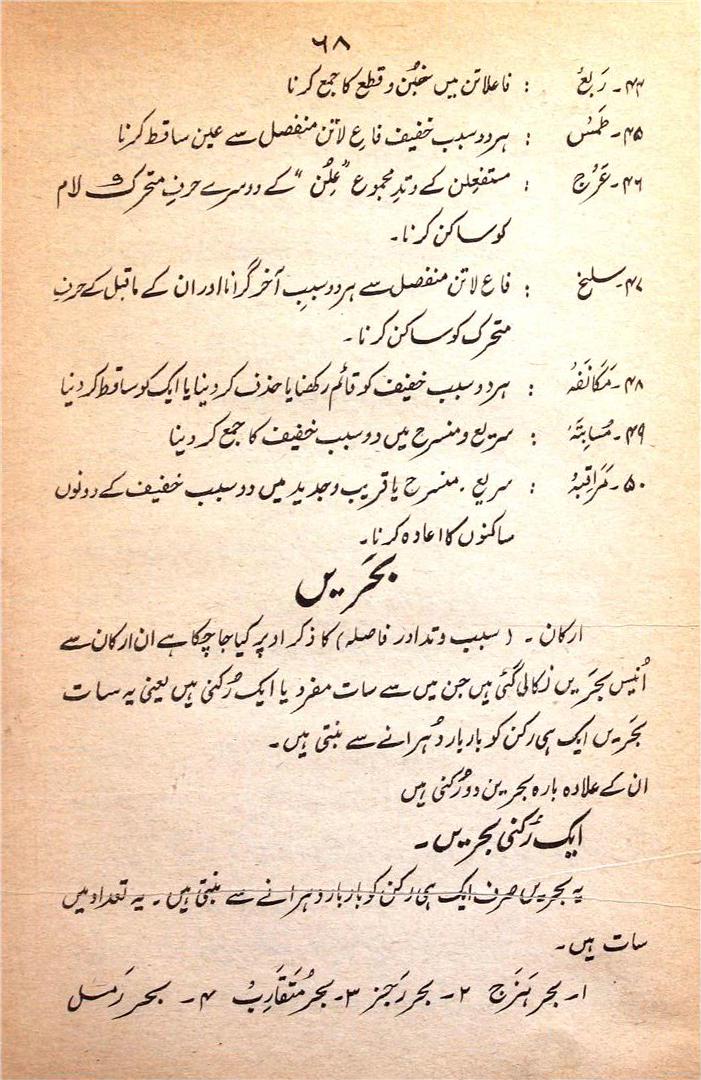 ۶۸
۴۴۔ رَبعُ : فاعلاتن میں خبُن و قطع کا جمع کرنا
۴۵۔ طَمَسُ : ہر دو سبب خفیف فاعِ لاتن منفصل سے عین ساقط کرنا
۴۶۔ عَرُج : مستفعلن کے وتدِ مجموع ”عِلُن“ کے دوسرے حرفِ متحرک و لام
کو ساکن کرنا۔
۴۷۔ سلیخ : فاع لاتن منفصل سے ہر دو سببِ آخر گرانا اور ان کے ماقبل کے حرفِ
متحرک کو ساکن کرنا۔
۴۸۔ مَکَانَفہُ : ہر دو سبب خفیف کو قائم رکھنا یا حذف کر دینا یا ایک کو ساقط کر دینا
۴۹۔ مُسابقہَ : سریع و منسرح میں دو سبب خفیف کا جمع کر دینا
۵۰۔ مَراقبہُ : سریع، منسرح یا قریب و جدید میں دو سبب خفیف کے دونوں
ساکنوں کا اعادہ کرنا۔
بحَریں
ارکان۔ (سبب وتد اور فاصلہ) کا ذکر اوپر کیا جا چکا ہے ان ارکان سے
اُنیس بحَریں نکالی گئی ہیں جن میں سے سات مفرد یا ایک رُکنی ہیں یعنی یہ سات
بحَریں ایک ہی رکن کو بار بار دُہرانے سے بنتی ہیں۔
ان کے علاوہ بارہ بحریں دو رُکنی ہیں
ایک رُکنی بحریں۔
یہ بحریں صرف ایک ہی رکن کو بار بار دہرانے سے بنتی ہیں۔ یہ تعداد میں
سات ہیں۔
۱۔ بحر ہَزَج ۲۔ بحر رَجز ۳۔ بحر مُتَقَارِبُ ۴۔ بحر رَمل